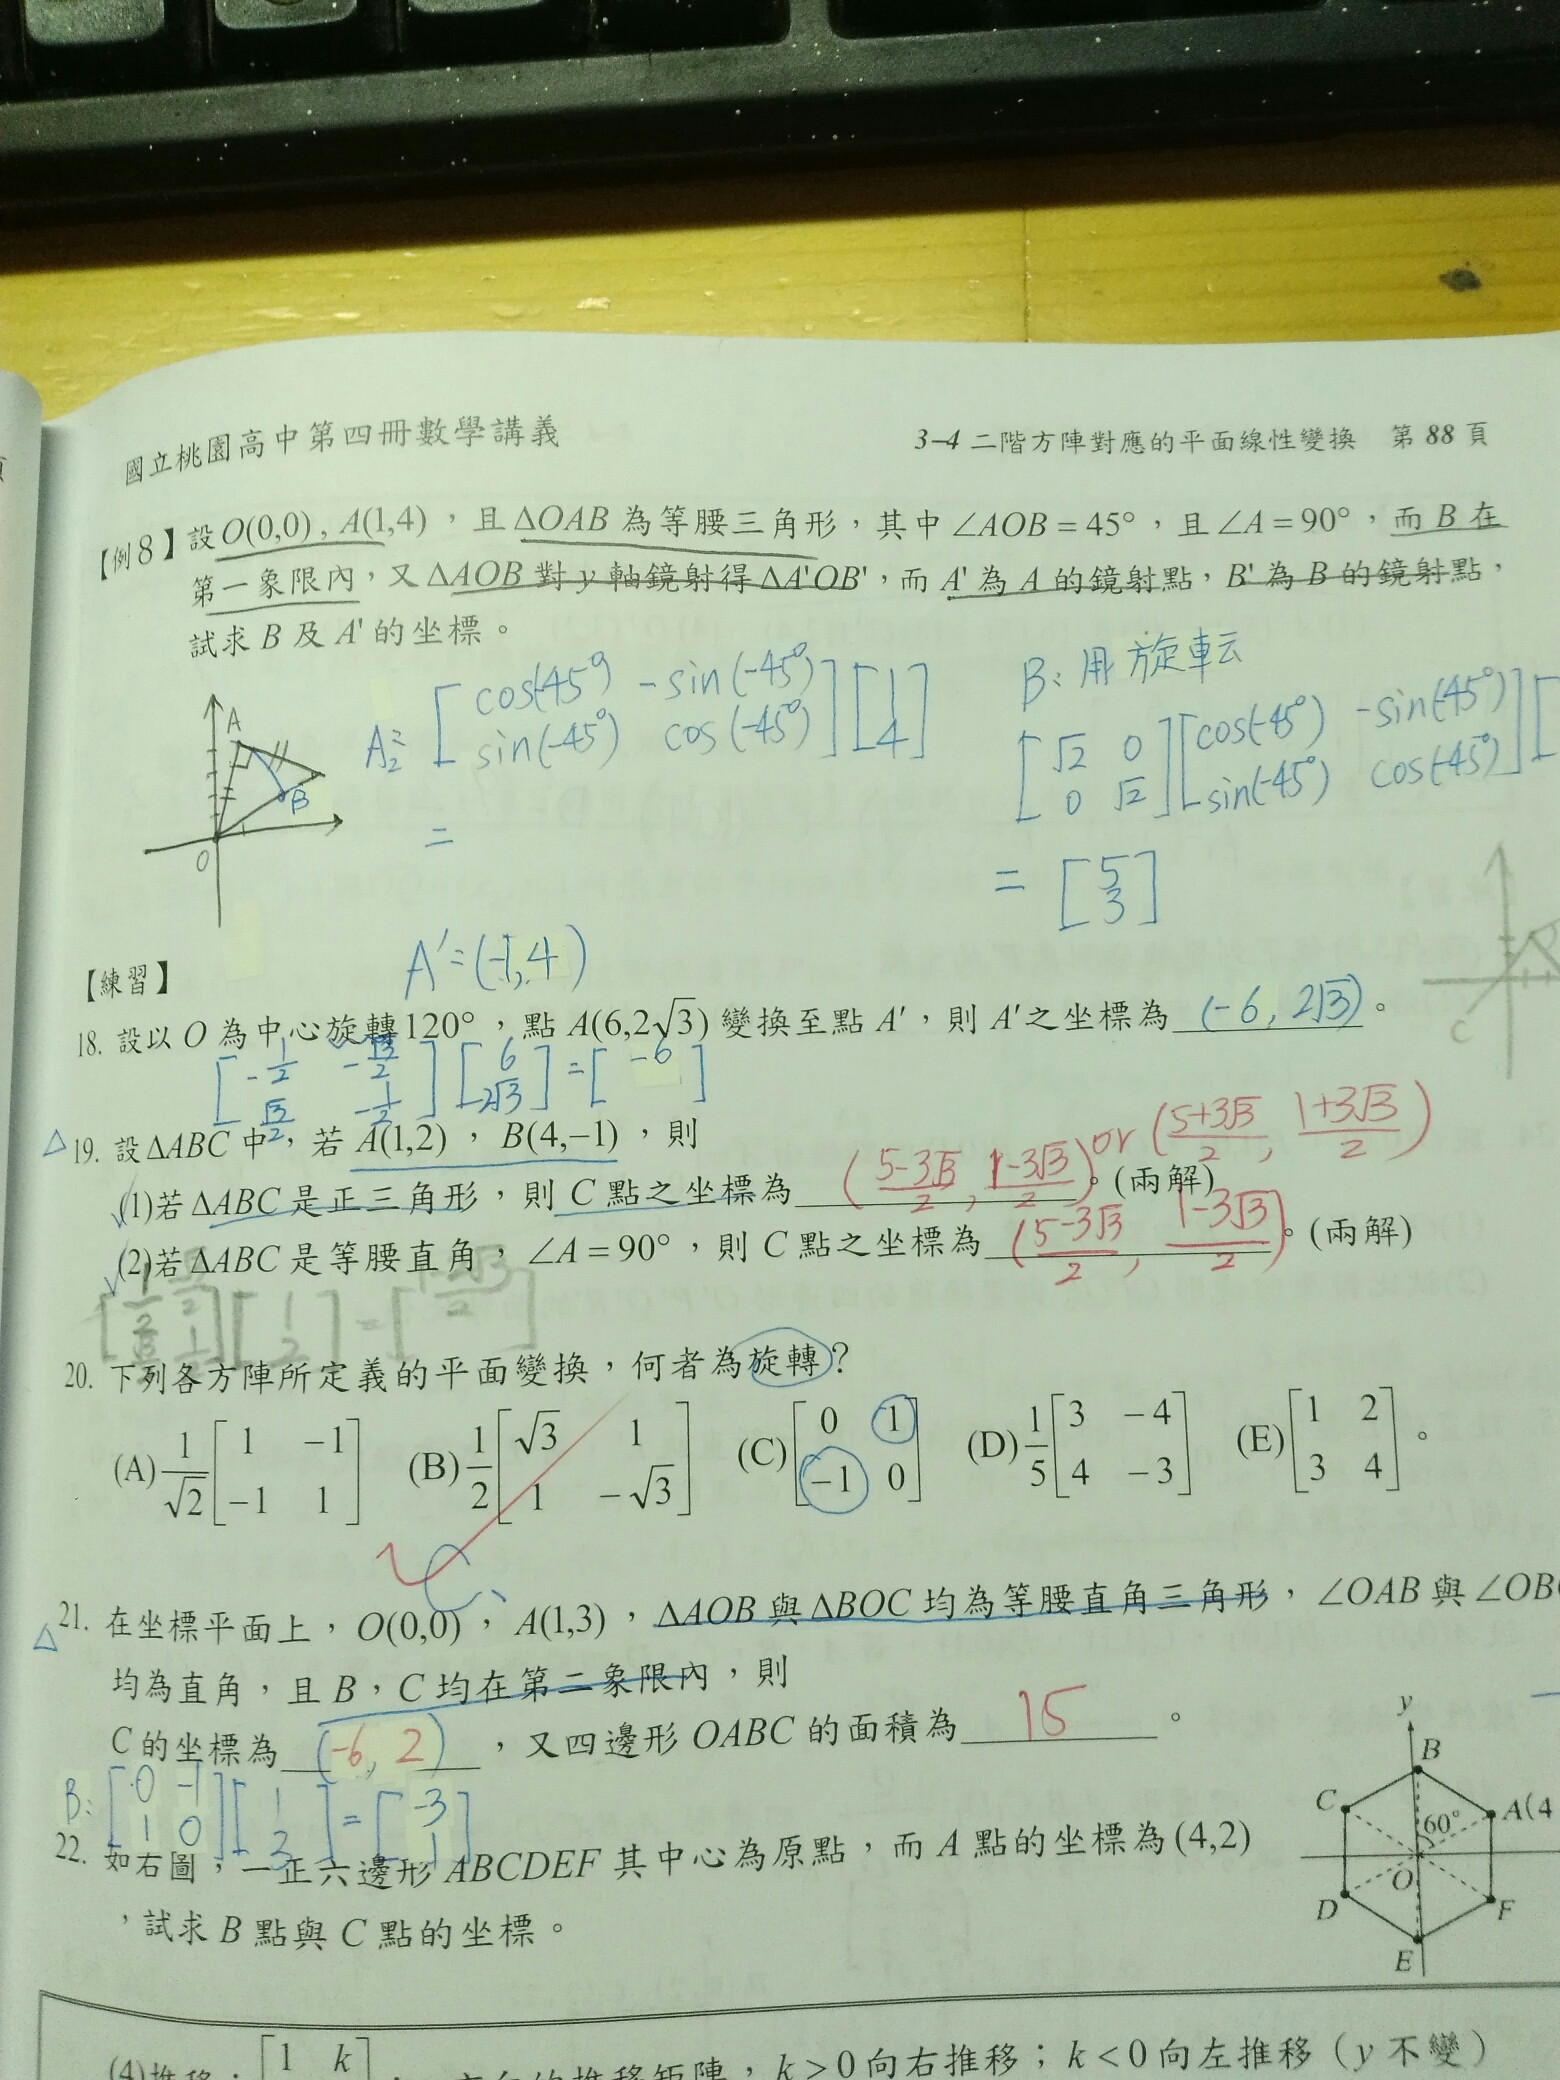 國立桃園高中第四冊數學講義
3-4 二階方陣對應的平面線性變換 第 88 頁
【例8】設 O(0,0) , A(1,4) ,且 ΔOAB 為等腰三角形,其中 ∠AOB = 45° ,且 ∠A = 90° ,而 B 在
第一象限內,又 ΔAOB 對 y 軸鏡射得 ΔA'OB',而 A' 為 A 的鏡射點,B' 為 B 的鏡射點,
試求 B 及 A' 的坐標。
[cos(-45°) -sin(-45°)
sin(-45°) cos(-45°)] [1
4]
=
B:用旋転
[√2 0
0 √2] [cos(-45°) -sin(-45°)
sin(-45°) cos(-45°)] [
= [5
3]
A
B
O
A'=(-1,4)
C
【練習】
18. 設以 O 為中心旋轉120° ,點 A(6,2√3) 變換至點 A' ,則 A' 之坐標為 (-6, 2√3) 。
[-1/2 -√3/2
√3/2 -1/2] [6
2√3] = [-6 ]
△ 19. 設 ΔABC 中,若 A(1,2) , B(4,−1) ,則
(1)若 ΔABC 是正三角形,則 C 點之坐標為 ((5-3√3)/2, (1-3√3)/2) or ((5+3√3)/2, (1+3√3)/2) 。(兩解)
(2)若 ΔABC 是等腰直角,∠A = 90° ,則 C 點之坐標為 ((5-3√3)/2, (1-3√3)/2) 。(兩解)
20. 下列各方陣所定義的平面變換,何者為旋轉?
(A) 1/√2 [1 −1; −1 1] (B) 1/2 [√3 1; 1 −√3] (C) [0 1; −1 0] (D) 1/5 [3 −4; 4 −3] (E) [1 2; 3 4] 。
C、
△ 21. 在坐標平面上,O(0,0) , A(1,3) ,ΔAOB 與 ΔBOC 均為等腰直角三角形,∠OAB 與 ∠OBC
均為直角,且 B,C 均在第二象限內,則
C 的坐標為 (-6, 2) ,又四邊形 OABC 的面積為 15 。
B: [0 -1
1 0] [1
3] = [-3
1]
22. 如右圖,一正六邊形 ABCDEF 其中心為原點,而 A 點的坐標為 (4,2)
,試求 B 點與 C 點的坐標。
y
B
C
A(4
60°
O
D
F
E
[1 k
k > 0 向右推移;k < 0 向左推移(y 不變)